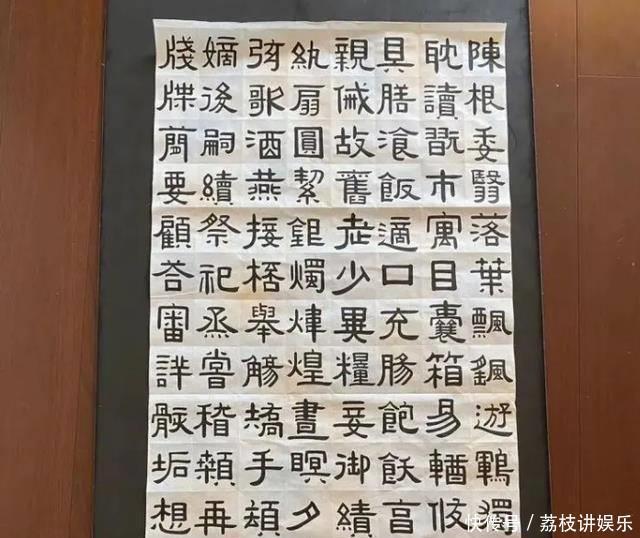 陳根委翳落葉飄颻遊鵾獨
耽讀翫市寓目囊箱易輶攸
具膳飡飯適口充腸飽飫亯
親戚故舊老少異糧妾御績
紈扇圓絜銀燭煒煌晝瞑夕
弦歌酒燕接桮舉觴矯手頓
嫡後嗣續祭祀烝嘗稽顙再
牋牒蕳要顧荅審詳骸垢想
快传号 / 荔枝讲娱乐